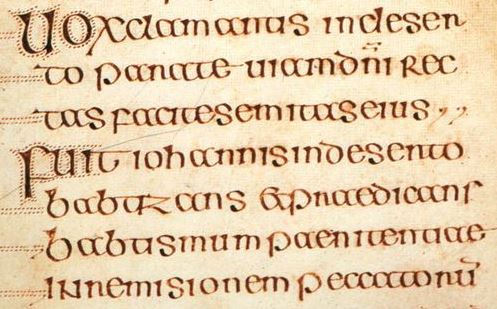 Uox clamantis in deser
to parate uiam dn̄i rec
tas facite semitas eius ,,
Fuit iohannis in deserto
babtizans & praedicans
babtismum paenitentiae
in remisionem peccatorū